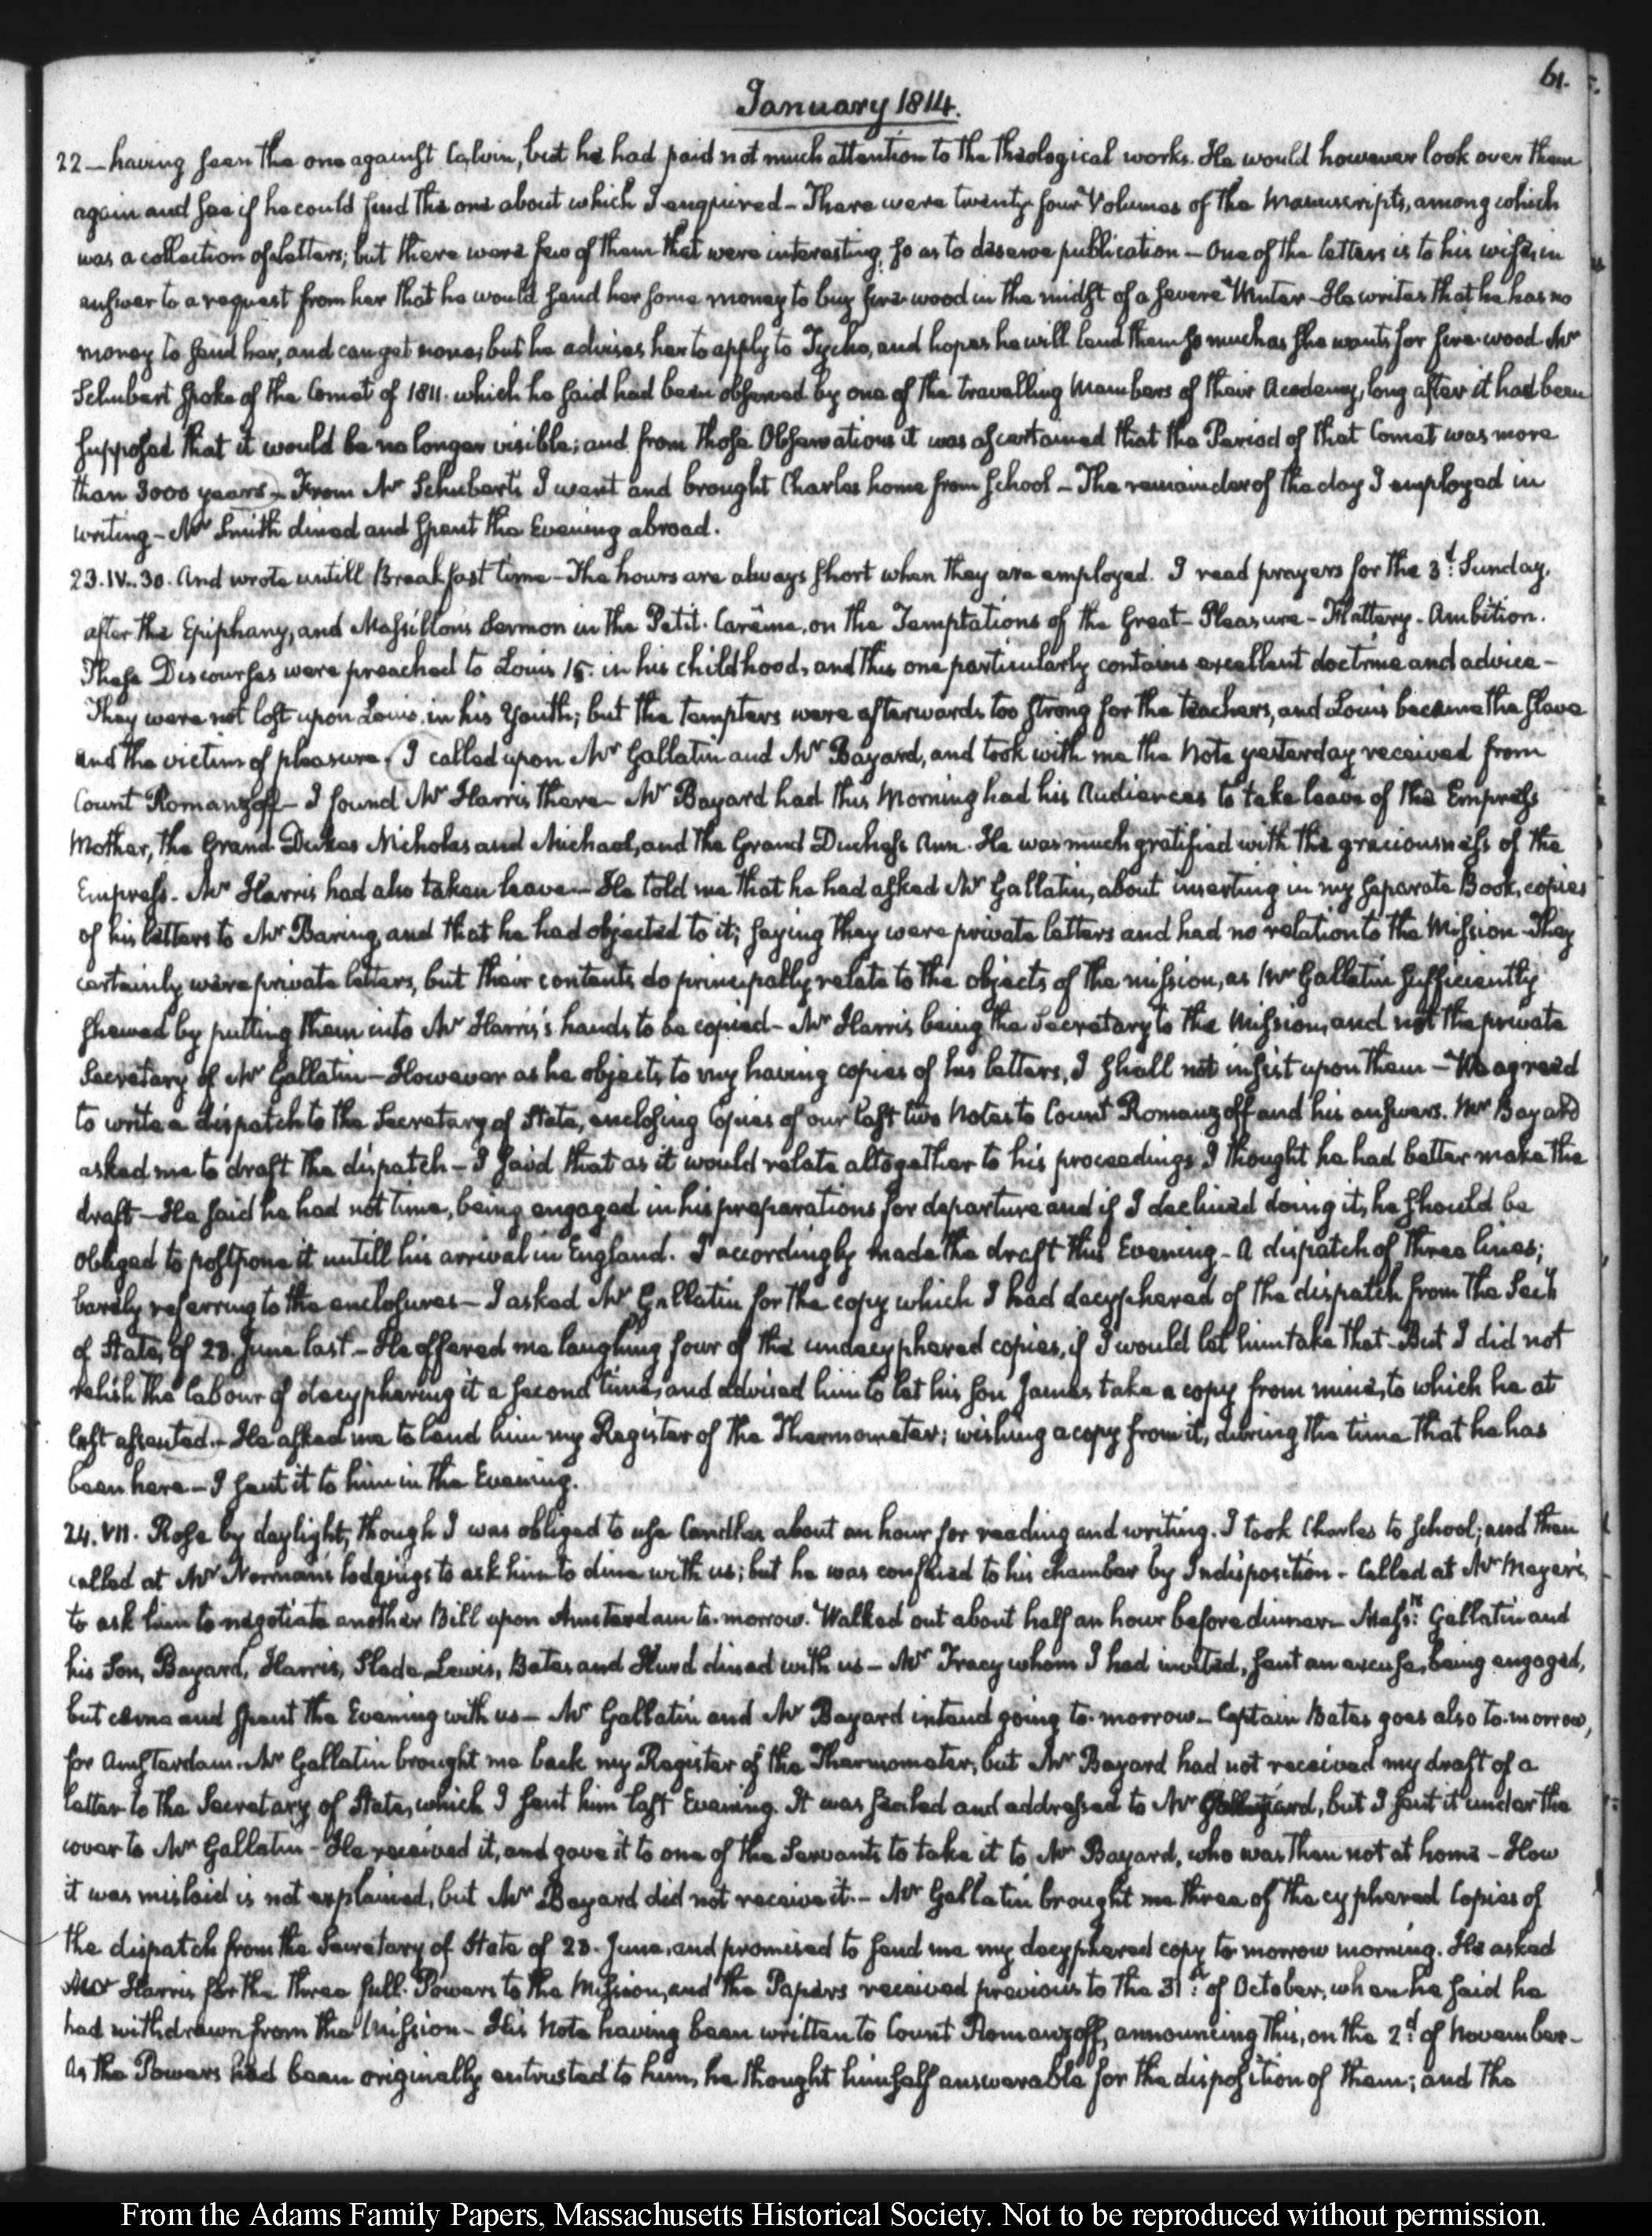 61.
January 1814.
22 — having seen the one against Calvin, but he had paid not much attention to the theological works. He would however look over them
again and see if he could find the one about which I enquired — There were twenty four Volumes of the Manuscripts, among which
was a collection of letters; but there were few of them that were interesting, so as to deserve publication — One of the letters is to his wife, in
answer to a request from her that he would send her some money to buy fire-wood in the midst of a severe Winter — He writes that he has no
money to send her, and can get none; but he advises her to apply to Tycho, and hopes he will lend them so much as she wants for fire-wood. Mr
Schubert spoke of the Comet of 1811. which he said had been observed by one of the travelling Members of their Academy, long after it had been
supposed that it would be no longer visible; and from those Observations it was ascertained that the Period of that Comet was more
than 3000 years — From Mr Schubert's I went and brought Charles home from School — The remainder of the day I employed in
writing — Mr Smith dined and spent the Evening abroad.
23. IV..30. And wrote untill Breakfast time — The hours are always short when they are employed. I read prayers for the 3d: Sunday,
after the Epiphany, and Massillon's Sermon in the Petit-Carême, on the Temptations of the Great — Pleasure — Flattery — Ambition.
These Discourses were preached to Louis 15. in his childhood, and this one particularly contains excellent doctrine and advice —
They were not lost upon Louis, in his Youth; but the tempters were afterwards too strong for the teachers, and Louis became the slave
and the victim of pleasure. (I called upon Mr Gallatin and Mr Bayard, and took with me the Note yesterday received from
Count Romanzoff — I found Mr Harris there — Mr Bayard had this Morning had his Audiences to take leave of the Empress
Mother, the Grand Dukes Nicholas and Michael, and the Grand Duchess Ann. He was much gratified with the graciousness of the
Empress — Mr Harris had also taken leave — He told me that he had asked Mr Gallatin, about inserting in my separate Book, copies
of his letters to Mr Baring, and that he had objected to it; saying they were private letters and had no relation to the Mission — They
certainly were private letters, but their contents do principally relate to the objects of the mission, as Mr Gallatin sufficiently
shewed by putting them into Mr Harris's hands to be copied — Mr Harris being the Secretary to the Mission, and not the private
Secretary of Mr Gallatin — However as he objects to my having copies of his letters, I shall not insist upon them — We agreed
to write a dispatch to the Secretary of State, enclosing Copies of our last two Notes to Count Romanzoff and his answers. Mr Bayard
asked me to draft the dispatch — I said that as it would relate altogether to his proceedings I thought he had better make the
draft — He said he had not time, being engaged in his preparations for departure and if I declined doing it, he should be
obliged to postpone it untill his arrival in England. I accordingly made the draft this Evening — A dispatch of three lines;
barely referring to the enclosures — I asked Mr Gallatin for the copy which I had decyphered of the dispatch from the Secy
of State, of 23. June last — He offered me laughing four of the undecyphered copies, if I would let him take that — But I did not
relish the labour of decyphering it a second time, and advised him to let his Son James take a copy from mine, to which he at
last assented.) — He asked me to lend him my Register of the Thermometer; wishing a copy from it, during the time that he has
been here — I sent it to him in the Evening.
24. VII. Rose by daylight, though I was obliged to use Candles about an hour for reading and writing. I took Charles to School; and then
called at Mr Norman's lodgings to ask him to dine with us; but he was confined to his chamber by Indisposition — Called at Mr Meyer's,
to ask him to negotiate another Bill upon Amsterdam to-morrow. Walked out about half an hour before dinner — Messrs: Gallatin and
his Son, Bayard, Harris, Slade, Lewis, Bates and Hurd dined with us — Mr Tracy whom I had invited, sent an excuse, being engaged,
but came and spent the Evening with us — Mr Gallatin and Mr Bayard intend going to-morrow — Captain Bates goes also to-morrow,
for Amsterdam. Mr Gallatin brought me back my Register of the Thermometer, but Mr Bayard had not received my draft of a
letter to the Secretary of State, which I sent him last Evening. It was sealed and addressed to Mr Bayard, but I sent it under the
cover to Mr Gallatin — He received it, and gave it to one of the Servants to take it to Mr Bayard, who was then not at home — How
it was mislaid is not explained, but Mr Bayard did not receive it. — Mr Gallatin brought me three of the cyphered Copies of
the dispatch from the Secretary of State of 23. June, and promised to send me my decyphered copy to-morrow morning. He asked
Mr Harris for the three full-Powers to the Mission, and the Papers received previous to the 31st: of October, when he said he
had withdrawn from the Mission — His Note having been written to Count Romanzoff, announcing this, on the 2d: of November —
As the Powers had been originally entrusted to him, he thought himself answerable for the disposition of them; and the
From the Adams Family Papers, Massachusetts Historical Society. Not to be reproduced without permission.